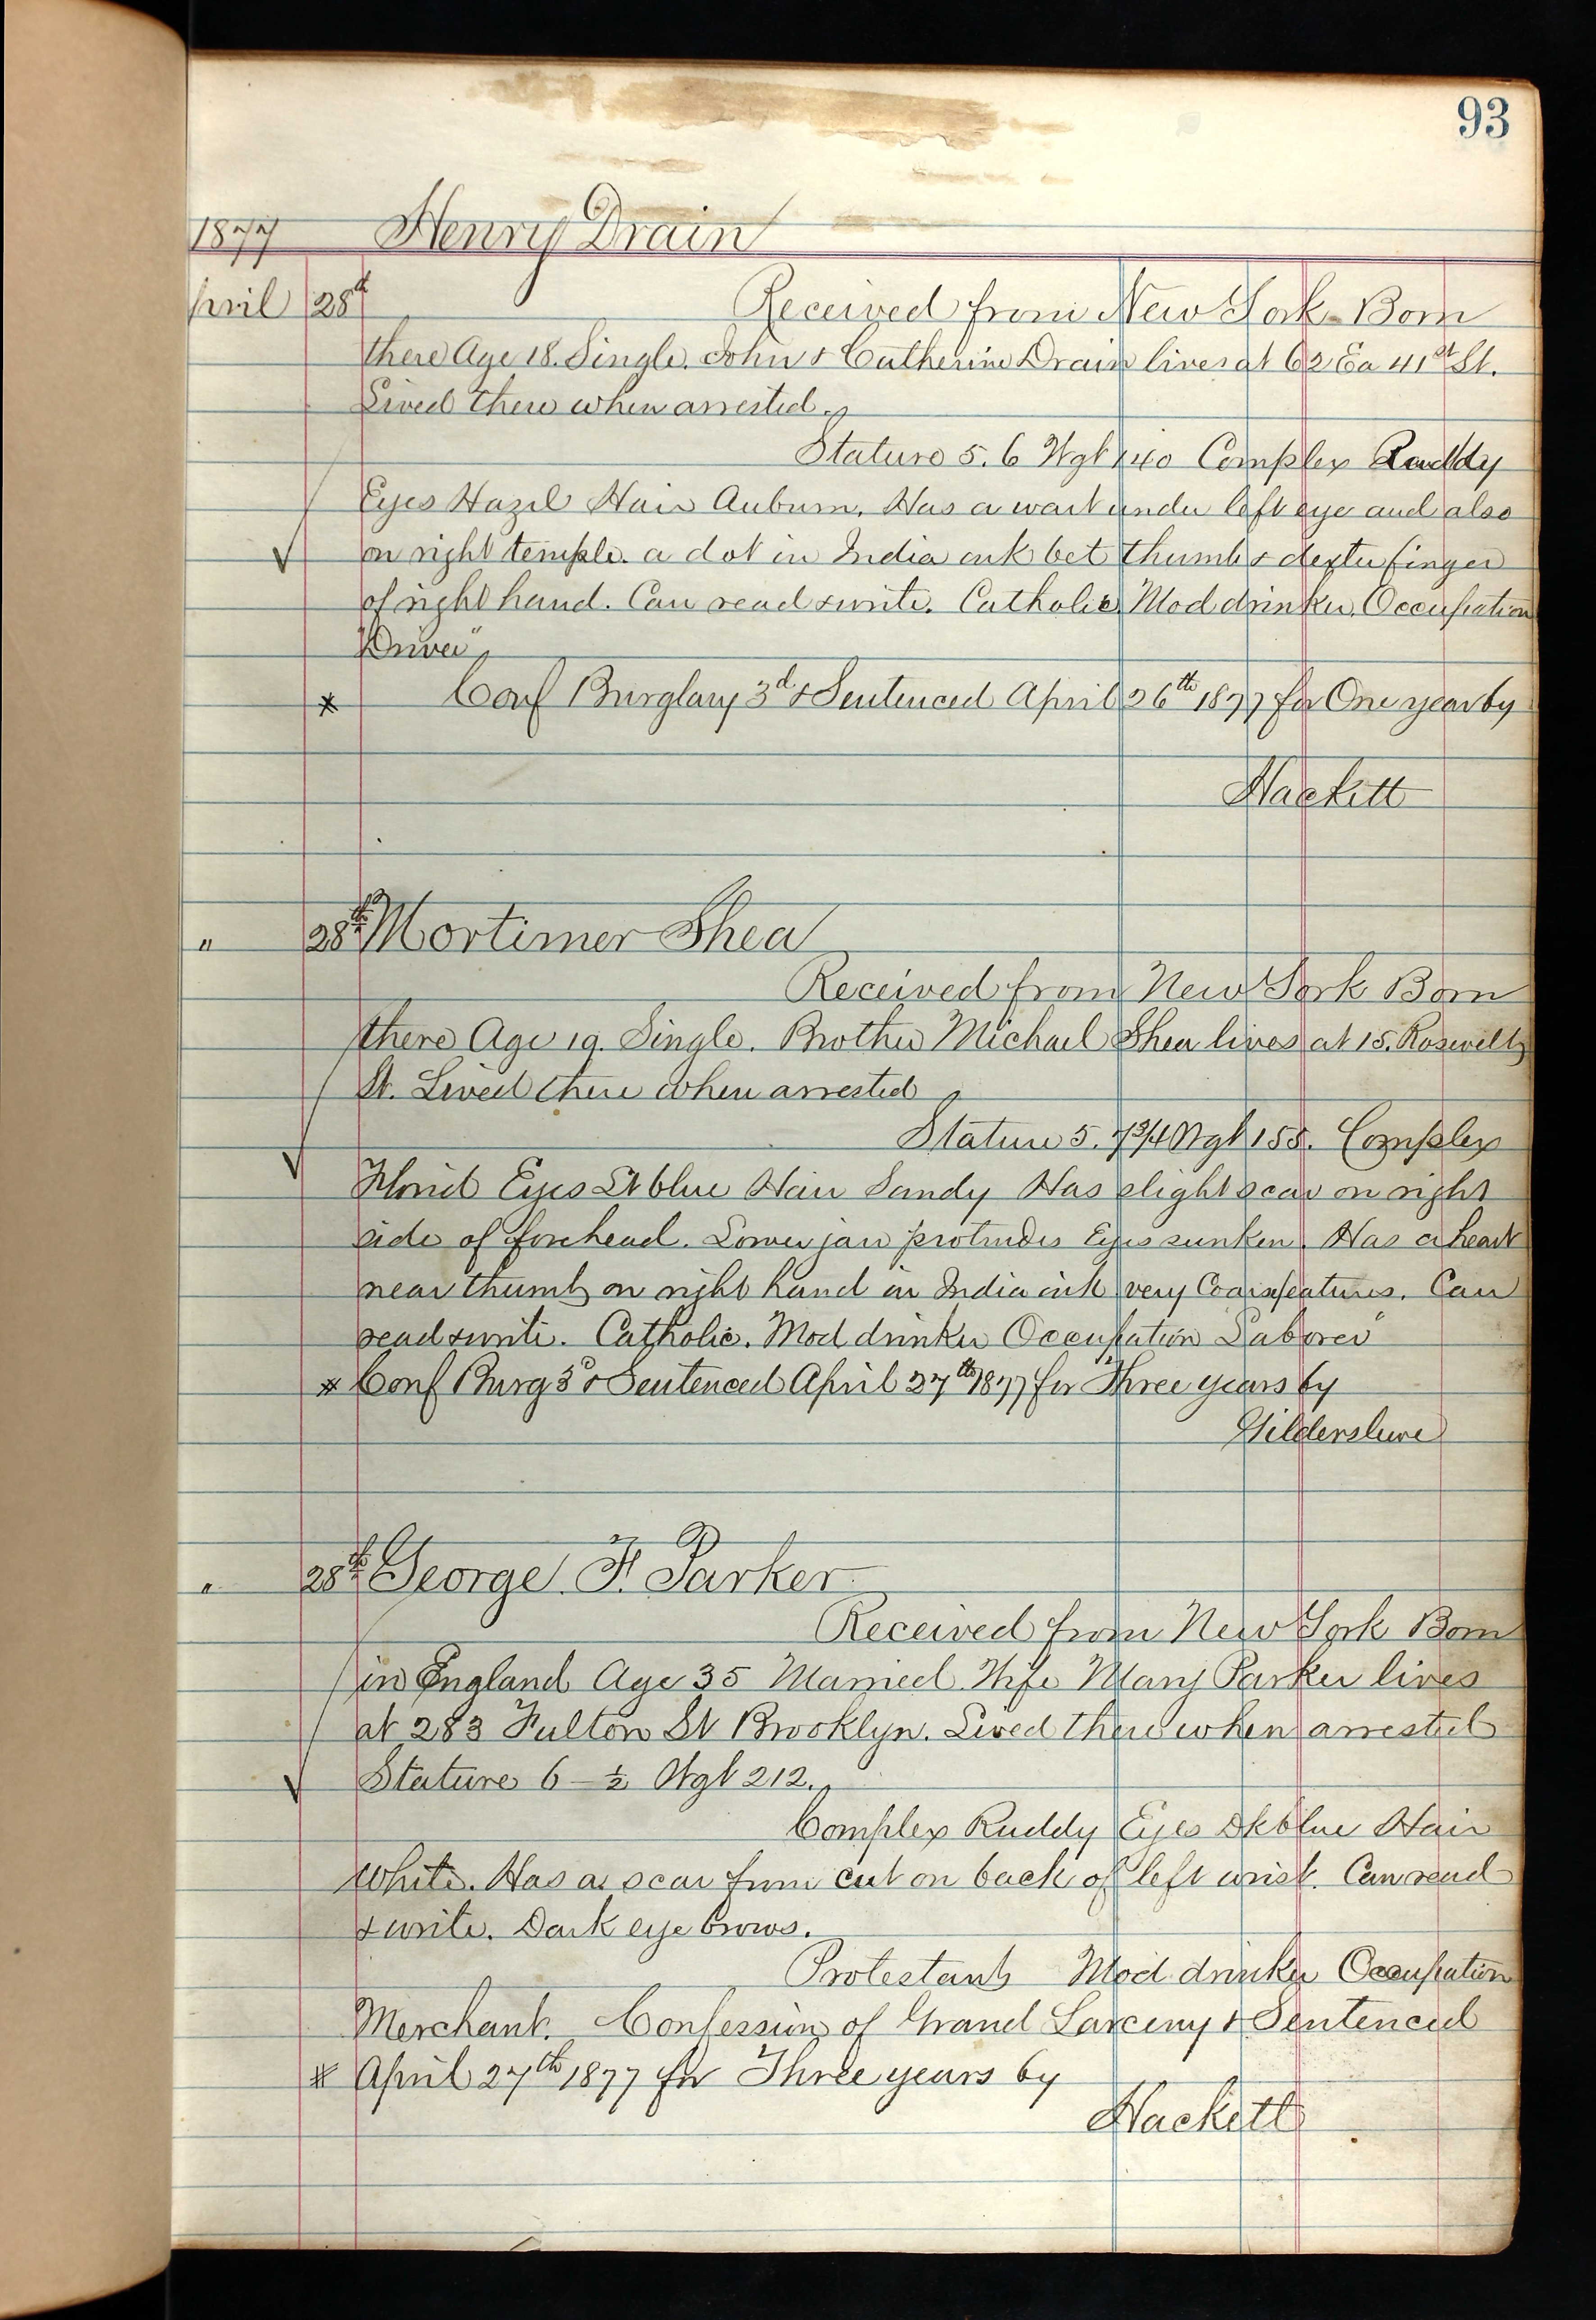 93
1877 Henry Drain
pril 28th
Received from New York - Born
there Age 18. Single. John & Cutherine Drain lives at 62 Ea 41st St.
Lived there when arrested.
Stature 5. 6 Wgt 140 Complex Ruddy
Eyes Hazel Hair Auburn. Has a wart under left eye and also
on right temple. a dot in India ink bet thumb & dexter finger
of right hand. Can read & write. Catholic Mod drinker. Occupation
"Driver"
* Conf Burglary 3d & Sentenced April 26th 1877 for One year by
Hackett
" 28th Mortimer Shea
Received from New York Born
there Age 19. Single. Brother Michael Shea lives at 15. Rosevelt
St. Lived there when arrested
Stature 5. 7 3/4 Wgt 155. Complex
Florid Eyes Lt blue Hair Sandy Has slight scar on right
side of forehead. Lower jaw protrudes Eyes sunken. Has a heart
near thumb on right hand in India ink very Coarse features. Can
read & write. Catholic. Mod drinker Occupation "Laborer"
* Conf Burg 3d & Sentenced April 27th 1877 for Three years by
Gildersleeve
" 28th George. F. Parker
Received from New York Born
in England Age 35 Married. Wife Mary Parker lives
at 283 Fulton St Brooklyn. Lived there when arrested
Stature 6 - 1/2 Wgt 212.
Complex Ruddy Eyes Dk blue Hair
White. Has a scar from cut on back of left wrist. Can read
& write. Dark eye brows.
Protestant Mod drinker Occupation
Merchant. Confession of Grand Larceny & Sentenced
* April 27th 1877 for Three years by
Hackett